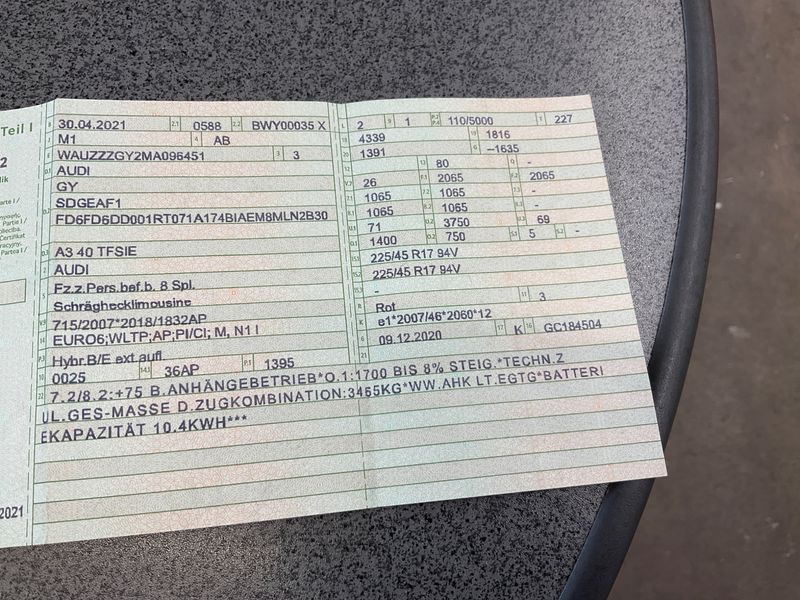 Teil I
B 30.04.2021 2.1 0588 2.2 BWY00035 X
J M1 4 AB
E WAUZZZGY2MA096451 3 3
D.1 AUDI
GY
D.2 SDGEAF1
FD6FD6DD001RT071A174BIAEM8MLN2B30
D.3 A3 40 TFSIE
2 AUDI
5 Fz.z.Pers.bef.b. 8 Spl.
Schräghecklimousine
V.9 715/2007*2018/1832AP
14 EURO6;WLTP;AP;PI/CI; M, N1 I
P.3 Hybr.B/E ext aufl
10 0025 14.1 36AP P.1 1395
L 2 9 1 P.2 P.4 110/5000 T 227
18 4339 19 1816
20 1391 G –1635
12 - 13 80 Q -
V.7 26 F.1 2065 F.2 2065
7.1 1065 7.2 1065 7.3 -
8.1 1065 8.2 1065 8.3 -
U.1 71 U.2 3750 U.3 69
O.1 1400 O.2 750 S.1 5 S.2 -
15.1 225/45 R17 94V
15.2 225/45 R17 94V
15.3 -
R Rot 11 3
K e1*2007/46*2060*12
6 09.12.2020 17 K 16 GC184504
21
22 7.2/8.2:+75 B.ANHÄNGEBETRIEB*O.1:1700 BIS 8% STEIG.*TECHN.Z
UL.GES-MASSE D.ZUGKOMBINATION:3465KG*WW.AHK LT.EGTG*BATTERI
EKAPAZITÄT 10.4KWH***
2021